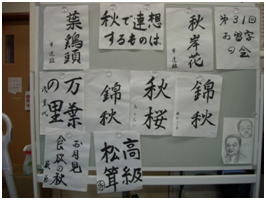 第31回
お習字
の会
秋岸花
秋で連想
するものは
葉鶏頭
錦秋
秋桜
錦秋
万葉
の里
高級
松茸
お月見
食欲の秋